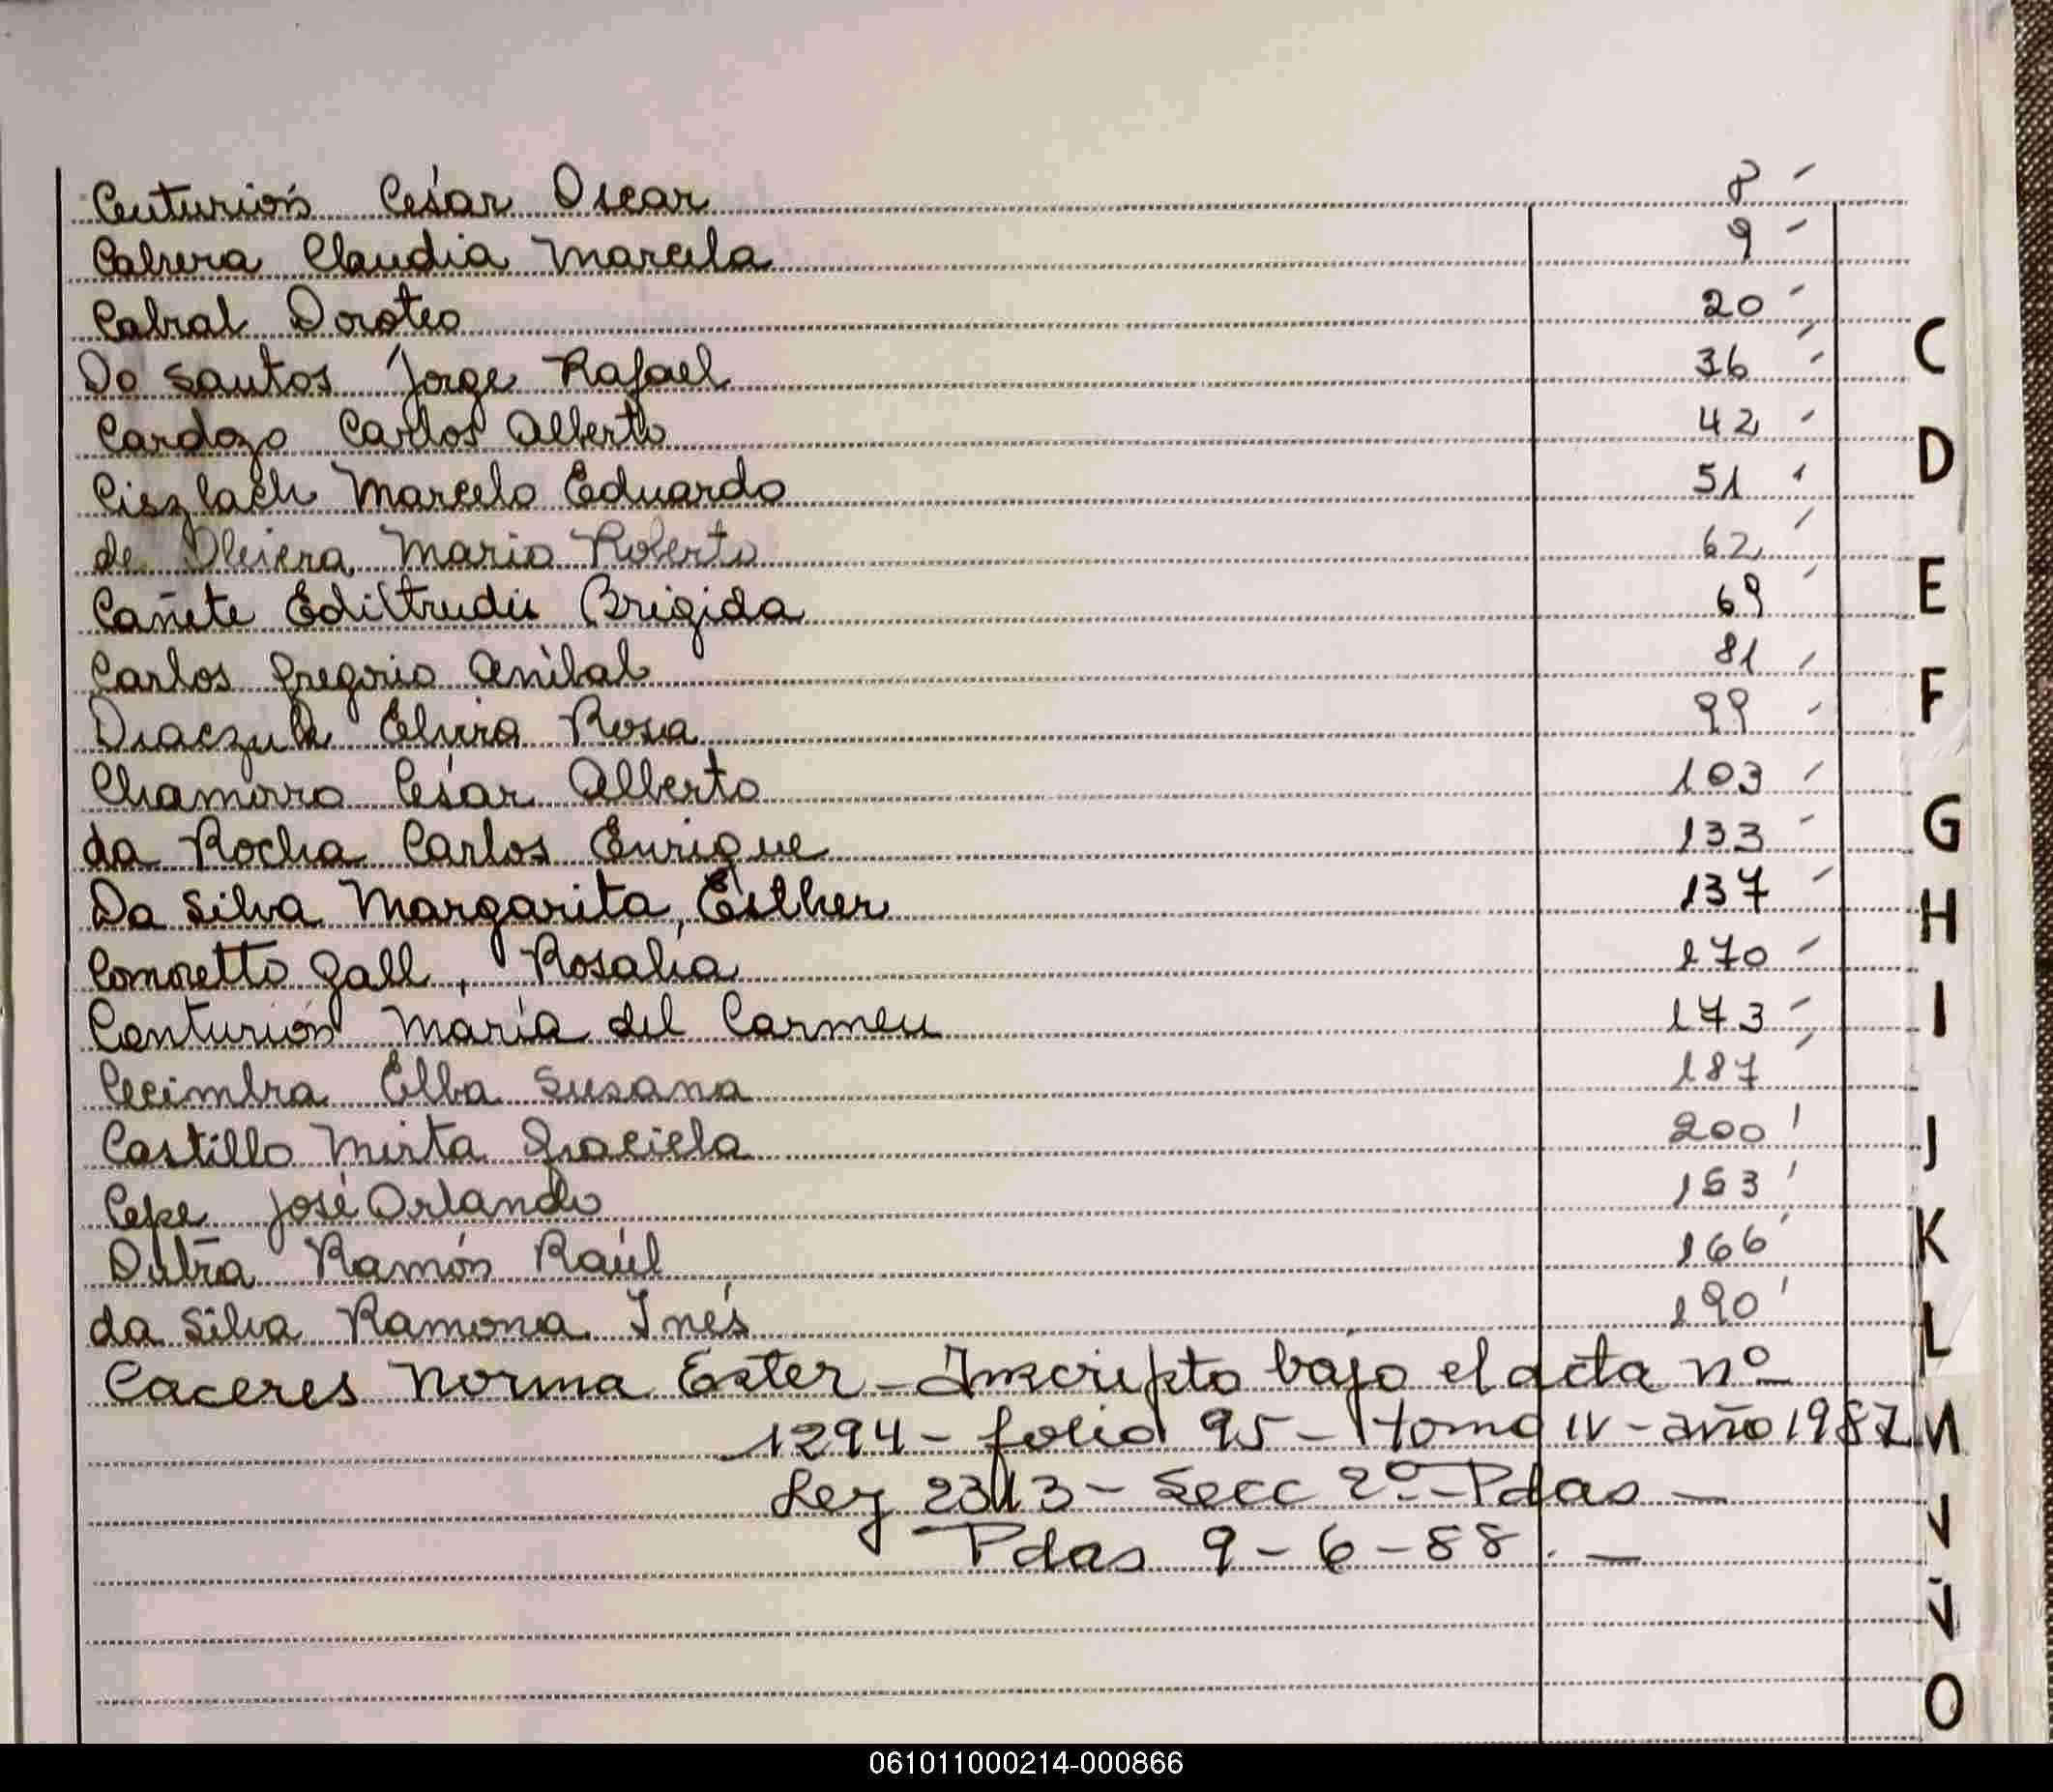 Centurión César Oscar 8
Cabrera Claudia Marcela 9
Cabral Doroteo 20
Do Santos Jorge Rafael 36
Cardozo Carlos Alberto 42
Ciszlach Marcelo Eduardo 51
de Oliviera Mario Roberto 62
Cañete Ediltrudis Brigida 69
Carlos Gregorio Anibal 81
Diaczuk Elvira Rosa 99
Chamorro César Alberto 103
da Rocha Carlos Enrique 133
Da Silva Margarita, Esther 137
Comoretto Gall, Rosalia 170
Centurión María del Carmen 173
Cecimbra Elba Susana 187
Castillo Mirta Graciela 200
Cepe José Orlando 153
Dutra Ramón Raúl 166
da Silva Ramona Inés 190
Caceres Norma Ester - Inscripto bajo el acta nº
1294 - folio 95 - tomo IV - año 1987
Ley 23413 - Secc 2º - Pdas -
Pdas 9-6-88. -
C
D
E
F
G
H
I
J
K
L
N
O
061011000214-000866